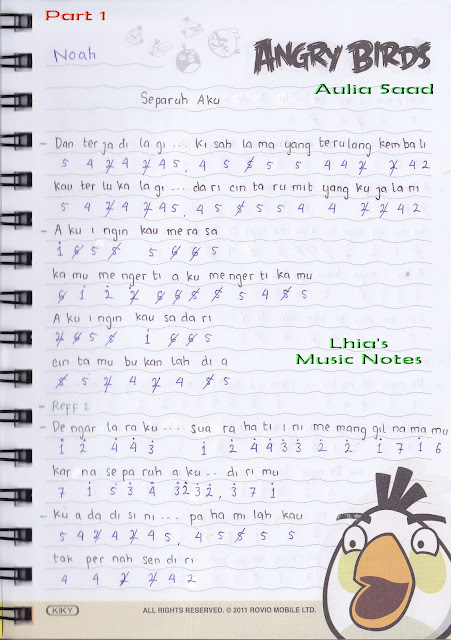 Part 1
Noah
ANGRY BIRDS
Aulia Saad
Separuh Aku
- Dan ter ja di la gi ... ki sah la ma yang terulang kem ba li
5 4 7 4 7 4 5 . 4 5 5 5 5 4 4 7 7 4 2
kau ter lu ka la gi ... da ri cin ta ru mit yang ku ja la ni
5 4 7 4 7 4 5 . 4 5 5 5 5 4 4 7 7 4 2
- A ku i ngin kau me ra sa
1 6 5 5 5 6 6 5
ka mu me nger ti a ku me nger ti ka mu
6 1 2 2 6 6 5 5 5 4 5 5
A ku i ngin kau sa da ri
7 6 5 5 1 6 6 5
cin ta mu bu kan lah di a
5 5 7 4 7 4 5 5
Lhia's
Music Notes
- Reff :
- De ngar la ra ku ... sua ra ha ti i ni me mang gil na ma mu
1 2 4 4 3 1 2 4 4 3 3 2 2 1 7 1 6
kar na se pa ruh a ku .. di ri mu
7 1 5 3 4 3 2 3 2 . 3 7 1
- ku a da di si ni ... pa ha mi lah kau
5 4 7 4 7 4 5 . 4 5 5 5 5
tak per nah sen di ri
4 4 7 7 4 2
KIKY
ALL RIGHTS RESERVED. © 2011 ROVIO MOBILE LTD.